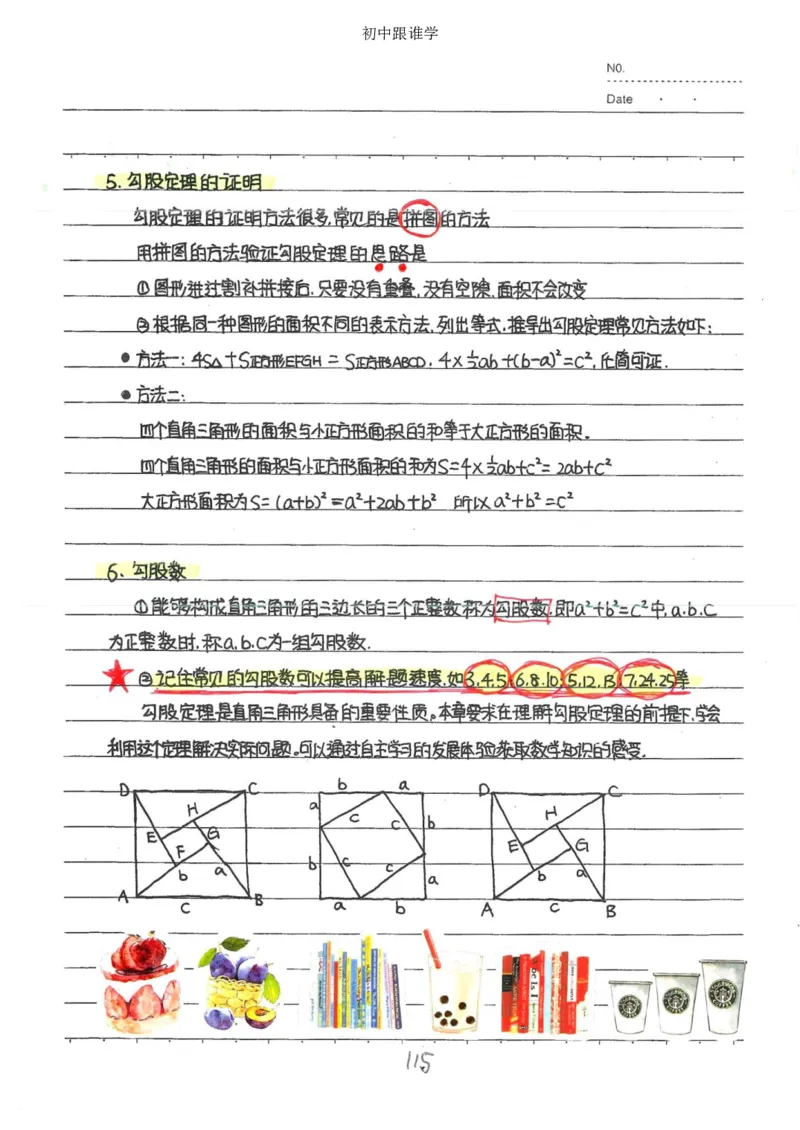 初中跟谁学
NO.
Date · ·
5. 勾股定理的证明
勾股定理的证明方法很多,常见的是拼图的方法
用拼图的方法验证勾股定理的思路是
①图形进过割补拼接后,只要没有重叠,没有空隙,面积不会改变
②根据同一种图形的面积不同的表示方法,列出等式,推导出勾股定理常见方法如下:
● 方法一: 4S△+S正方形EFGH = S正方形ABCD, 4×½ab+(b-a)²=c², 化简可证.
● 方法二:
四个直角三角形的面积与小正方形面积的和等于大正方形的面积.
四个直角三角形的面积与小正方形面积的和为S=4×½ab+c²=2ab+c²
大正方形面积为S=(a+b)²=a²+2ab+b² 所以a²+b²=c²
6. 勾股数
①能够构成直角三角形的三边长的三个正整数称为勾股数,即a²+b²=c²中,a.b.c
为正整数时,称a,b.c为一组勾股数.
②记住常见的勾股数可以提高解题速度,如3,4,5;6,8,10;5,12,13;7,24,25等
勾股定理是直角三角形具备的重要性质。本章要求在理解勾股定理的前提下,学会
利用这个定理解决实际问题。可以通过自主学习的发展体验获取数学知识的感受.
D C b a D C
H a c c b H
E G E G
F b c c a
b a b a
A c B a b A c B
115